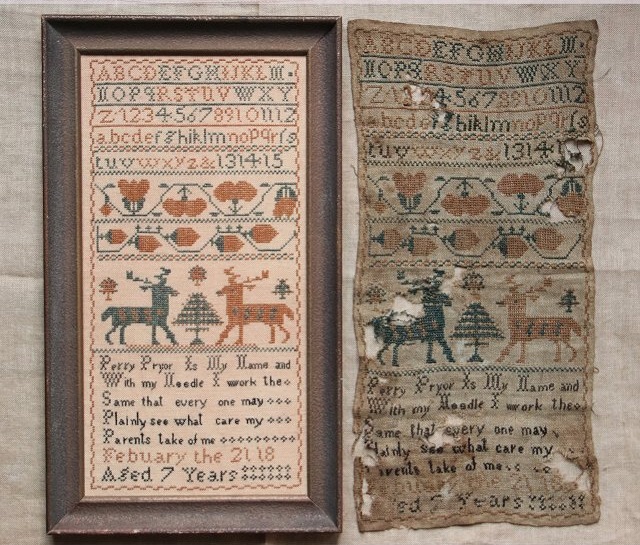 ABCDEFGHIJKLM.
NOPQRSTUVWXY
Z123456789101112
abcdefghiklmnopqrſs
tuvwxyz&131415
Perry Pryor Is My Name and
With my Needle I work the
Same that every one may
Plainly see what care my
Parents take of me
Febuary the 21 18
Aged 7 Years
ABCDEFGHIJKLM
NOPQRSTUVWXY
Z 3456789101112
abcdefghiklmnopqrſs
tuvwxyz&1314
Perry Pryor Is My Name and
With my Needle I work the
Same that every one may
Plainly see what care my
arents take of me
ed 7 Years